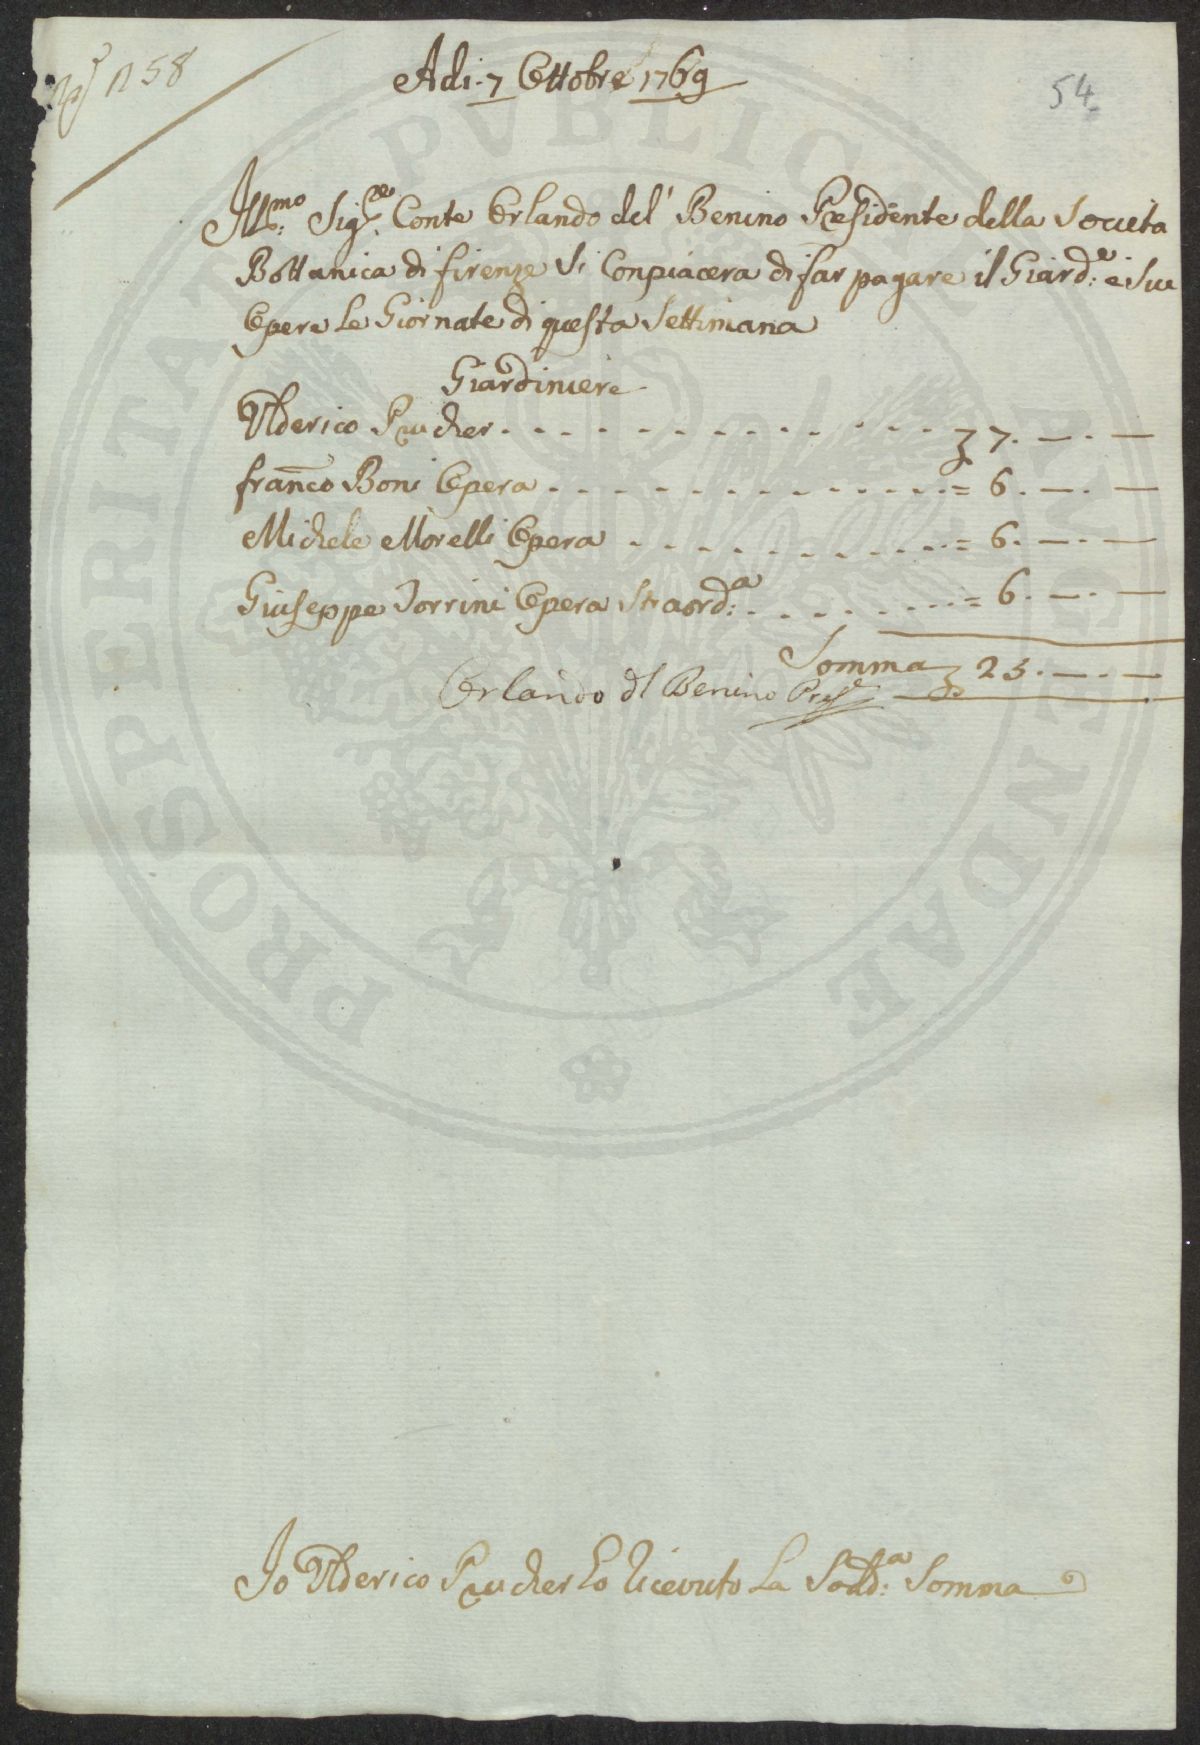 n 58
Adi 7 Ottobre 1769
54.
Ill:mo Sig:re Conte Orlando del' Benino Presidente della Società
Bottanica di firenze Si Conpiacera di far pagare il Giard:e e i Sue
Opere le Giornate di questa Settimana
Giardiniere
Ulderico Prucher . . . . . . . . 7. —. —
Franco Boni Opera . . . . . . . . = 6. —. —
Michele Morelli Opera . . . . . . . . = 6. —. —
Giuseppe Torrini Opera Straord:a . . . . . . . . = 6. —. —
Somma 25. —. —
Orlando del Benino Pres:e
Io Ulderico Prucher ho ricevuto la Sodd:a Somma
PROSPERITATI PVBLICAE AVGENDAE